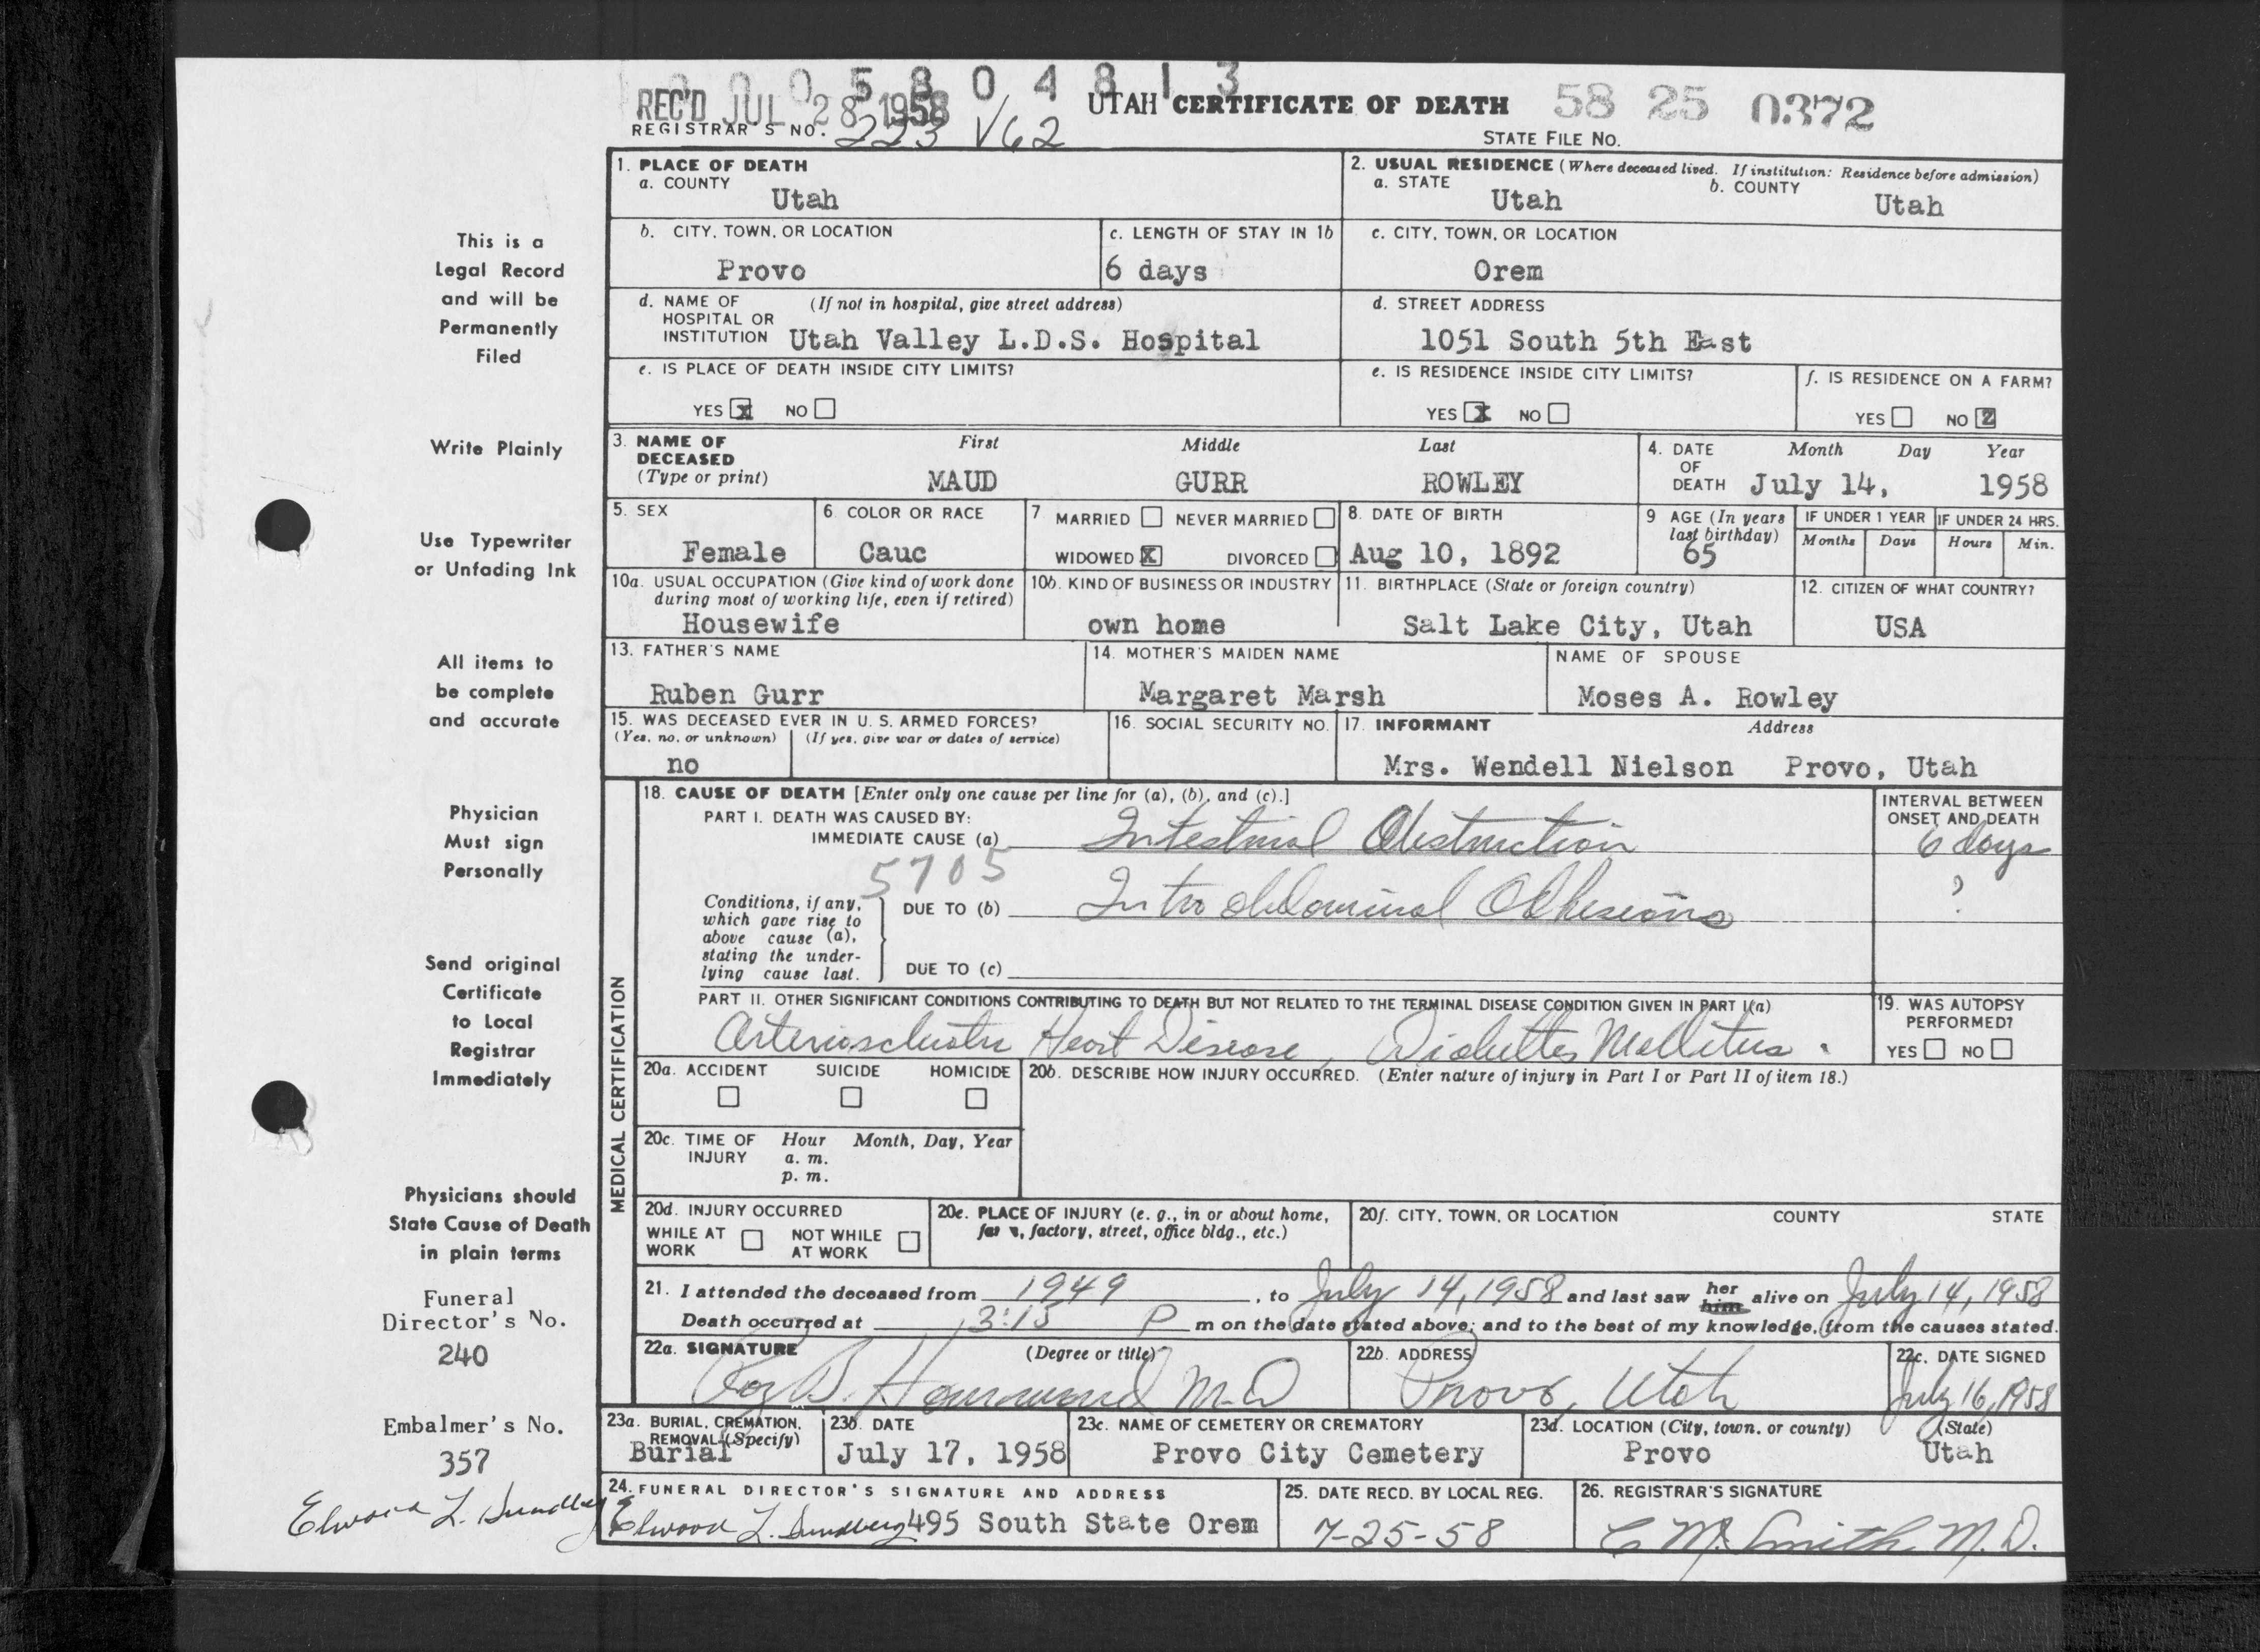 0 0 0 5 8 0 4 8 1 3
REC'D JUL 28 1958 UTAH CERTIFICATE OF DEATH 58 25 0372
REGISTRAR'S NO. 223 V62 STATE FILE NO.
1. PLACE OF DEATH
a. COUNTY Utah
2. USUAL RESIDENCE (Where deceased lived. If institution: Residence before admission)
a. STATE Utah b. COUNTY Utah
b. CITY, TOWN, OR LOCATION Provo
c. LENGTH OF STAY IN 1b 6 days
c. CITY, TOWN, OR LOCATION Orem
d. NAME OF HOSPITAL OR INSTITUTION (If not in hospital, give street address) Utah Valley L.D.S. Hospital
d. STREET ADDRESS 1051 South 5th East
e. IS PLACE OF DEATH INSIDE CITY LIMITS?
YES X NO
e. IS RESIDENCE INSIDE CITY LIMITS?
YES X NO
f. IS RESIDENCE ON A FARM?
YES NO Z
3. NAME OF DECEASED (Type or print) First Middle Last
MAUD GURR ROWLEY
4. DATE OF DEATH Month Day Year
July 14, 1958
5. SEX Female
6. COLOR OR RACE Cauc
7 MARRIED NEVER MARRIED
WIDOWED X DIVORCED
8. DATE OF BIRTH Aug 10, 1892
9 AGE (In years last birthday) 65
IF UNDER 1 YEAR Months Days
IF UNDER 24 HRS. Hours Min.
10a. USUAL OCCUPATION (Give kind of work done during most of working life, even if retired)
Housewife
10b. KIND OF BUSINESS OR INDUSTRY
own home
11. BIRTHPLACE (State or foreign country)
Salt Lake City, Utah
12. CITIZEN OF WHAT COUNTRY?
USA
13. FATHER'S NAME
Ruben Gurr
14. MOTHER'S MAIDEN NAME
Margaret Marsh
NAME OF SPOUSE
Moses A. Rowley
15. WAS DECEASED EVER IN U. S. ARMED FORCES?
(Yes, no, or unknown) (If yes, give war or dates of service)
no
16. SOCIAL SECURITY NO.
17. INFORMANT Address
Mrs. Wendell Nielson Provo, Utah
MEDICAL CERTIFICATION
18. CAUSE OF DEATH [Enter only one cause per line for (a), (b), and (c).]
INTERVAL BETWEEN ONSET AND DEATH
PART I. DEATH WAS CAUSED BY:
IMMEDIATE CAUSE (a) Intestinal Obstruction 6 days
5705
Conditions, if any, which gave rise to above cause (a), stating the underlying cause last.
DUE TO (b) Intra abdominal Adhesions ?
DUE TO (c)
PART II. OTHER SIGNIFICANT CONDITIONS CONTRIBUTING TO DEATH BUT NOT RELATED TO THE TERMINAL DISEASE CONDITION GIVEN IN PART I(a)
Arteriosclerotic Heart Disease, Diabettes Mellitus.
19. WAS AUTOPSY PERFORMED?
YES NO
20a. ACCIDENT SUICIDE HOMICIDE
20b. DESCRIBE HOW INJURY OCCURRED. (Enter nature of injury in Part I or Part II of item 18.)
20c. TIME OF INJURY Hour Month, Day, Year
a. m.
p. m.
20d. INJURY OCCURRED
WHILE AT WORK NOT WHILE AT WORK
20e. PLACE OF INJURY (e. g., in or about home, farm, factory, street, office bldg., etc.)
20f. CITY, TOWN, OR LOCATION COUNTY STATE
21. I attended the deceased from 1949, to July 14, 1958 and last saw her him alive on July 14, 1958
Death occurred at 3:15 P m on the date stated above; and to the best of my knowledge, from the causes stated.
22a. SIGNATURE (Degree or title)
Roy B. Hammond M.D
22b. ADDRESS
Provo, Utah
22c. DATE SIGNED
July 16, 1958
23a. BURIAL, CREMATION, REMOVAL (Specify)
Burial
23b. DATE
July 17, 1958
23c. NAME OF CEMETERY OR CREMATORY
Provo City Cemetery
23d. LOCATION (City, town, or county) (State)
Provo Utah
24. FUNERAL DIRECTOR'S SIGNATURE AND ADDRESS
Elwood L. Sundberg 495 South State Orem
25. DATE RECD. BY LOCAL REG.
7-25-58
26. REGISTRAR'S SIGNATURE
C M Smith M.D.
This is a
Legal Record
and will be
Permanently
Filed
Write Plainly
Use Typewriter
or Unfading Ink
All items to
be complete
and accurate
Physician
Must sign
Personally
Send original
Certificate
to Local
Registrar
Immediately
Physicians should
State Cause of Death
in plain terms
Funeral
Director's No.
240
Embalmer's No.
357
Elwood L. Sundberg